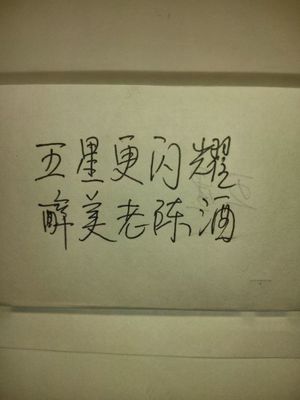 五星更闪耀
醉美老陈酒